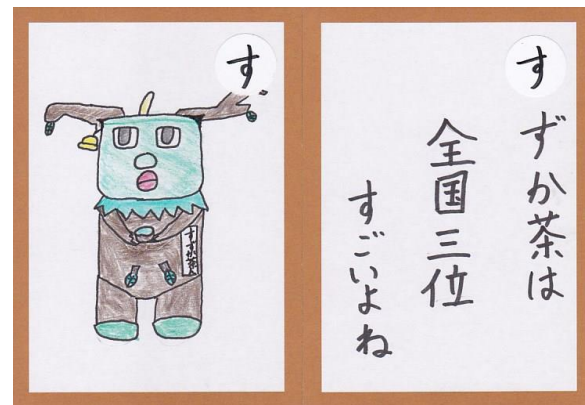 す
すずか茶
す
ずか茶は
全国三位
すごいよね